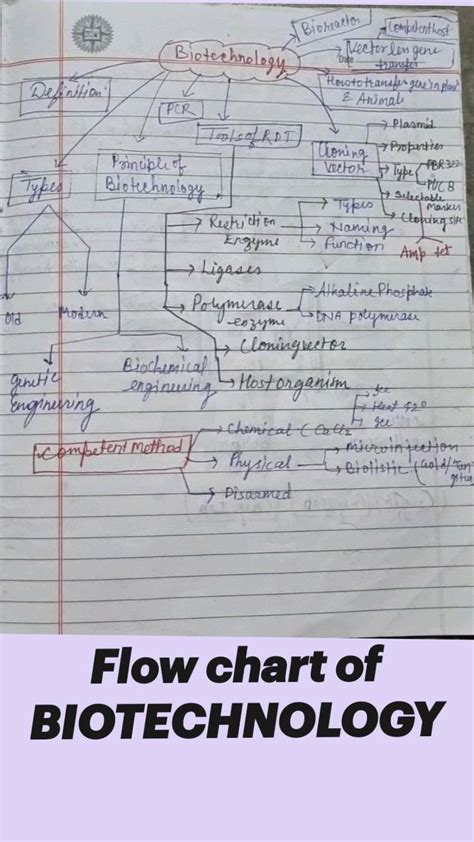 Bioreactor
Competent host
Biotechnology
Vectorless gene
Date
transfer
Definition
How to transfer gene in plant
& Animals
PCR
Tools of RDT
Plasmid
Cloning
vector
Properties
Type
PBR322
PUC8
Selectable
Marker
Cloning site
Amp tet
Types
Principle of
Biotechnology
Restriction
Enzyme
Types
Naming
Function
Ligases
Old
Modern
Polymerase
enzyme
Alkaline Phosphate
DNA polymerase
Cloning vector
genetic
Engineering
Biochemical
engineering
Host organism
Ice
Heat 42°
Ice
Competent Method
Chemical (CaCl2
Physical
Microinjection
Biolistic (Gold/Tun
Disarmed
Flow chart of
BIOTECHNOLOGY